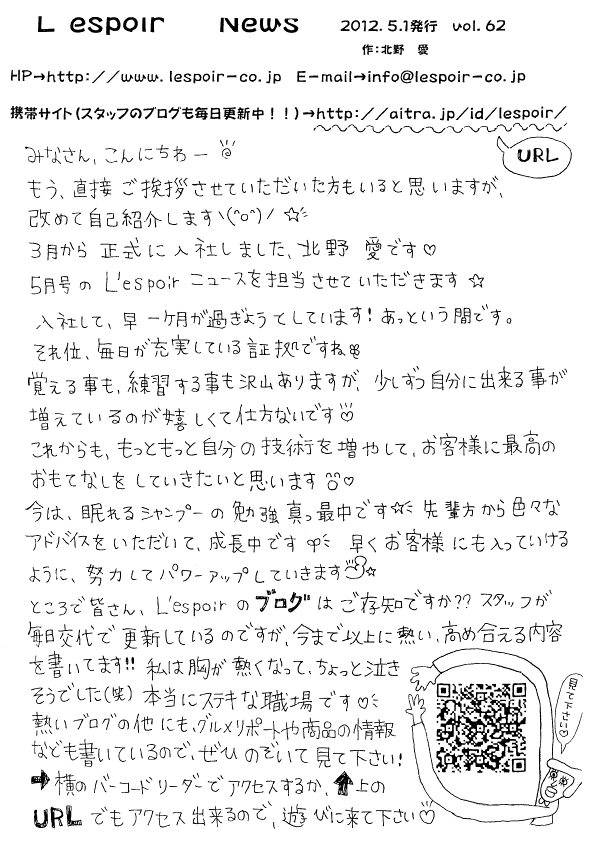 L'espoir News 2012.5.1発行 vol.62
作:北野 愛
HP→http://www.lespoir-co.jp E-mail→info@lespoir-co.jp
携帯サイト(スタッフのブログも毎日更新中!!)→http://aitra.jp/id/lespoir/
URL
みなさん、こんにちわー
もう、直接ご挨拶させていただいた方もいると思いますが、
改めて自己紹介しますヽ(^o^)ノ☆
3月から正式に入社しました、北野 愛です♡
5月号のL'espoirニュースを担当させていただきます☆
入社して、早一ヶ月が過ぎようてしています!あっという間です。
それ位、毎日が充実している証拠ですね
覚える事も、練習する事も沢山ありますが、少しずつ自分に出来る事が
増えているのが嬉しくて仕方ないです
これからも、もっともっと自分の技術を増やして、お客様に最高の
おもてなしをしていきたいと思います♡
今は、眠れるシャンプーの勉強真っ最中です☆先輩方から色々な
アドバイスをいただいて、成長中です 早くお客様にも入っていける
ように、努力してパワーアップしていきます☆
ところで皆さん、L'espoirのブログはご存知ですか??スタッフが
毎日交代で更新しているのですが、今まで以上に熱い、高め合える内容
を書いてます!!私は胸が熱くなって、ちょっと泣き
そうでした(笑)本当にステキな職場です♡
熱いブログの他にも、グルメリポートや商品の情報
なども書いているので、ぜひのぞいて見て下さい!
➡横のバーコードリーダーでアクセスするか、⬆上の
URLでもアクセス出来るので、遊びに来て下さい♡
見て下さい♡